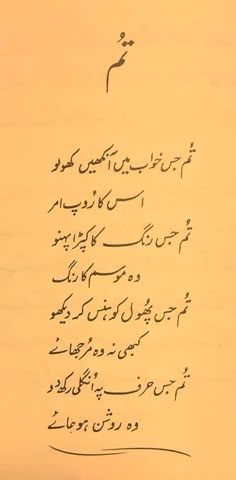 تُم
تُم جس خواب میں آنکھیں کھولو
اس کا رُوپ امر
تُم جس رنگ کا کپڑا پہنو
وہ موسم کا رنگ
تُم جس پھُول کو ہنس کر دیکھو
کبھی نہ وہ مُرجھائے
تُم جس حرف پہ اُنگلی رکھ دو
وہ روشن ہو جائے